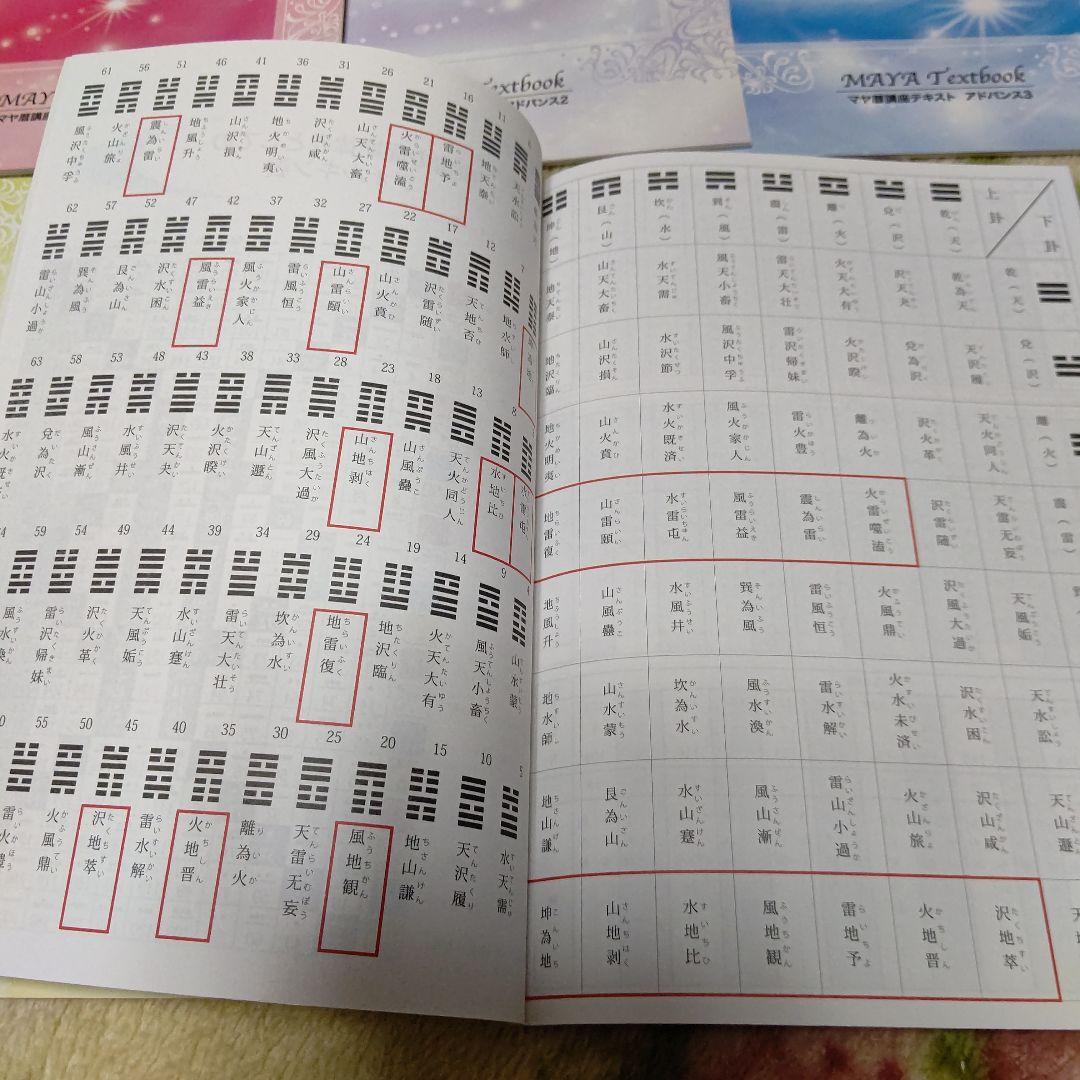 MAYA
マヤ暦講座
MAYA Textbook
アドバンス2
MAYA Textbook
マヤ暦講座テキスト アドバンス3
61 56 51 46 41 36 31 26 21 16 11
風沢中孚 火山旅 震為雷 地風升 山沢損 地火明夷 沢山咸 山天大畜 火雷噬嗑 雷地予 地天泰 天水訟
62 57 52 47 42 37 32 27 22 17 12 7
雷山小過 巽為風 艮為山 沢水困 風雷益 風火家人 雷風恒 山雷頤 山火賁 沢雷随 天地否 地水師
63 58 53 48 43 38 33 28 23 18 13 8
水火既済 兌為沢 風山漸 水風井 沢天夬 火沢睽 天山遯 沢風大過 山地剥 山風蠱 天火同人 水地比
59 54 49 44 39 34 29 24 19 14 9 4
風水渙 雷沢帰妹 沢火革 天風姤 水山蹇 雷天大壮 坎為水 地雷復 地沢臨 火天大有 風天小畜 山水蒙
55 50 45 40 35 30 25 20 15 10 5
雷火豊 火風鼎 沢地萃 雷水解 火地晋 離為火 天雷无妄 風地観 地山謙 天沢履 水天需
上卦 下卦
坤（地） 艮（山） 坎（水） 巽（風） 震（雷） 離（火） 兌（沢） 乾（天）
地天泰 山天大畜 水天需 風天小畜 雷天大壮 火天大有 沢天夬 乾為天 乾（天）
地沢臨 山沢損 水沢節 風沢中孚 雷沢帰妹 火沢睽 兌為沢 天沢履 兌（沢）
地火明夷 山火賁 水火既済 風火家人 雷火豊 離為火 沢火革 天火同人 離（火）
地雷復 山雷頤 水雷屯 風雷益 震為雷 火雷噬嗑 沢雷随 天雷无妄 震（雷）
地風升 山風蠱 水風井 巽為風 雷風恒 火風鼎 沢風大過 天風姤
地水師 山水蒙 坎為水 風水渙 雷水解 火水未済 沢水困 天水訟
地山謙 艮為山 水山蹇 風山漸 雷山小過 火山旅 沢山咸 天山遯
坤為地 山地剥 水地比 風地観 雷地予 火地晋 沢地萃